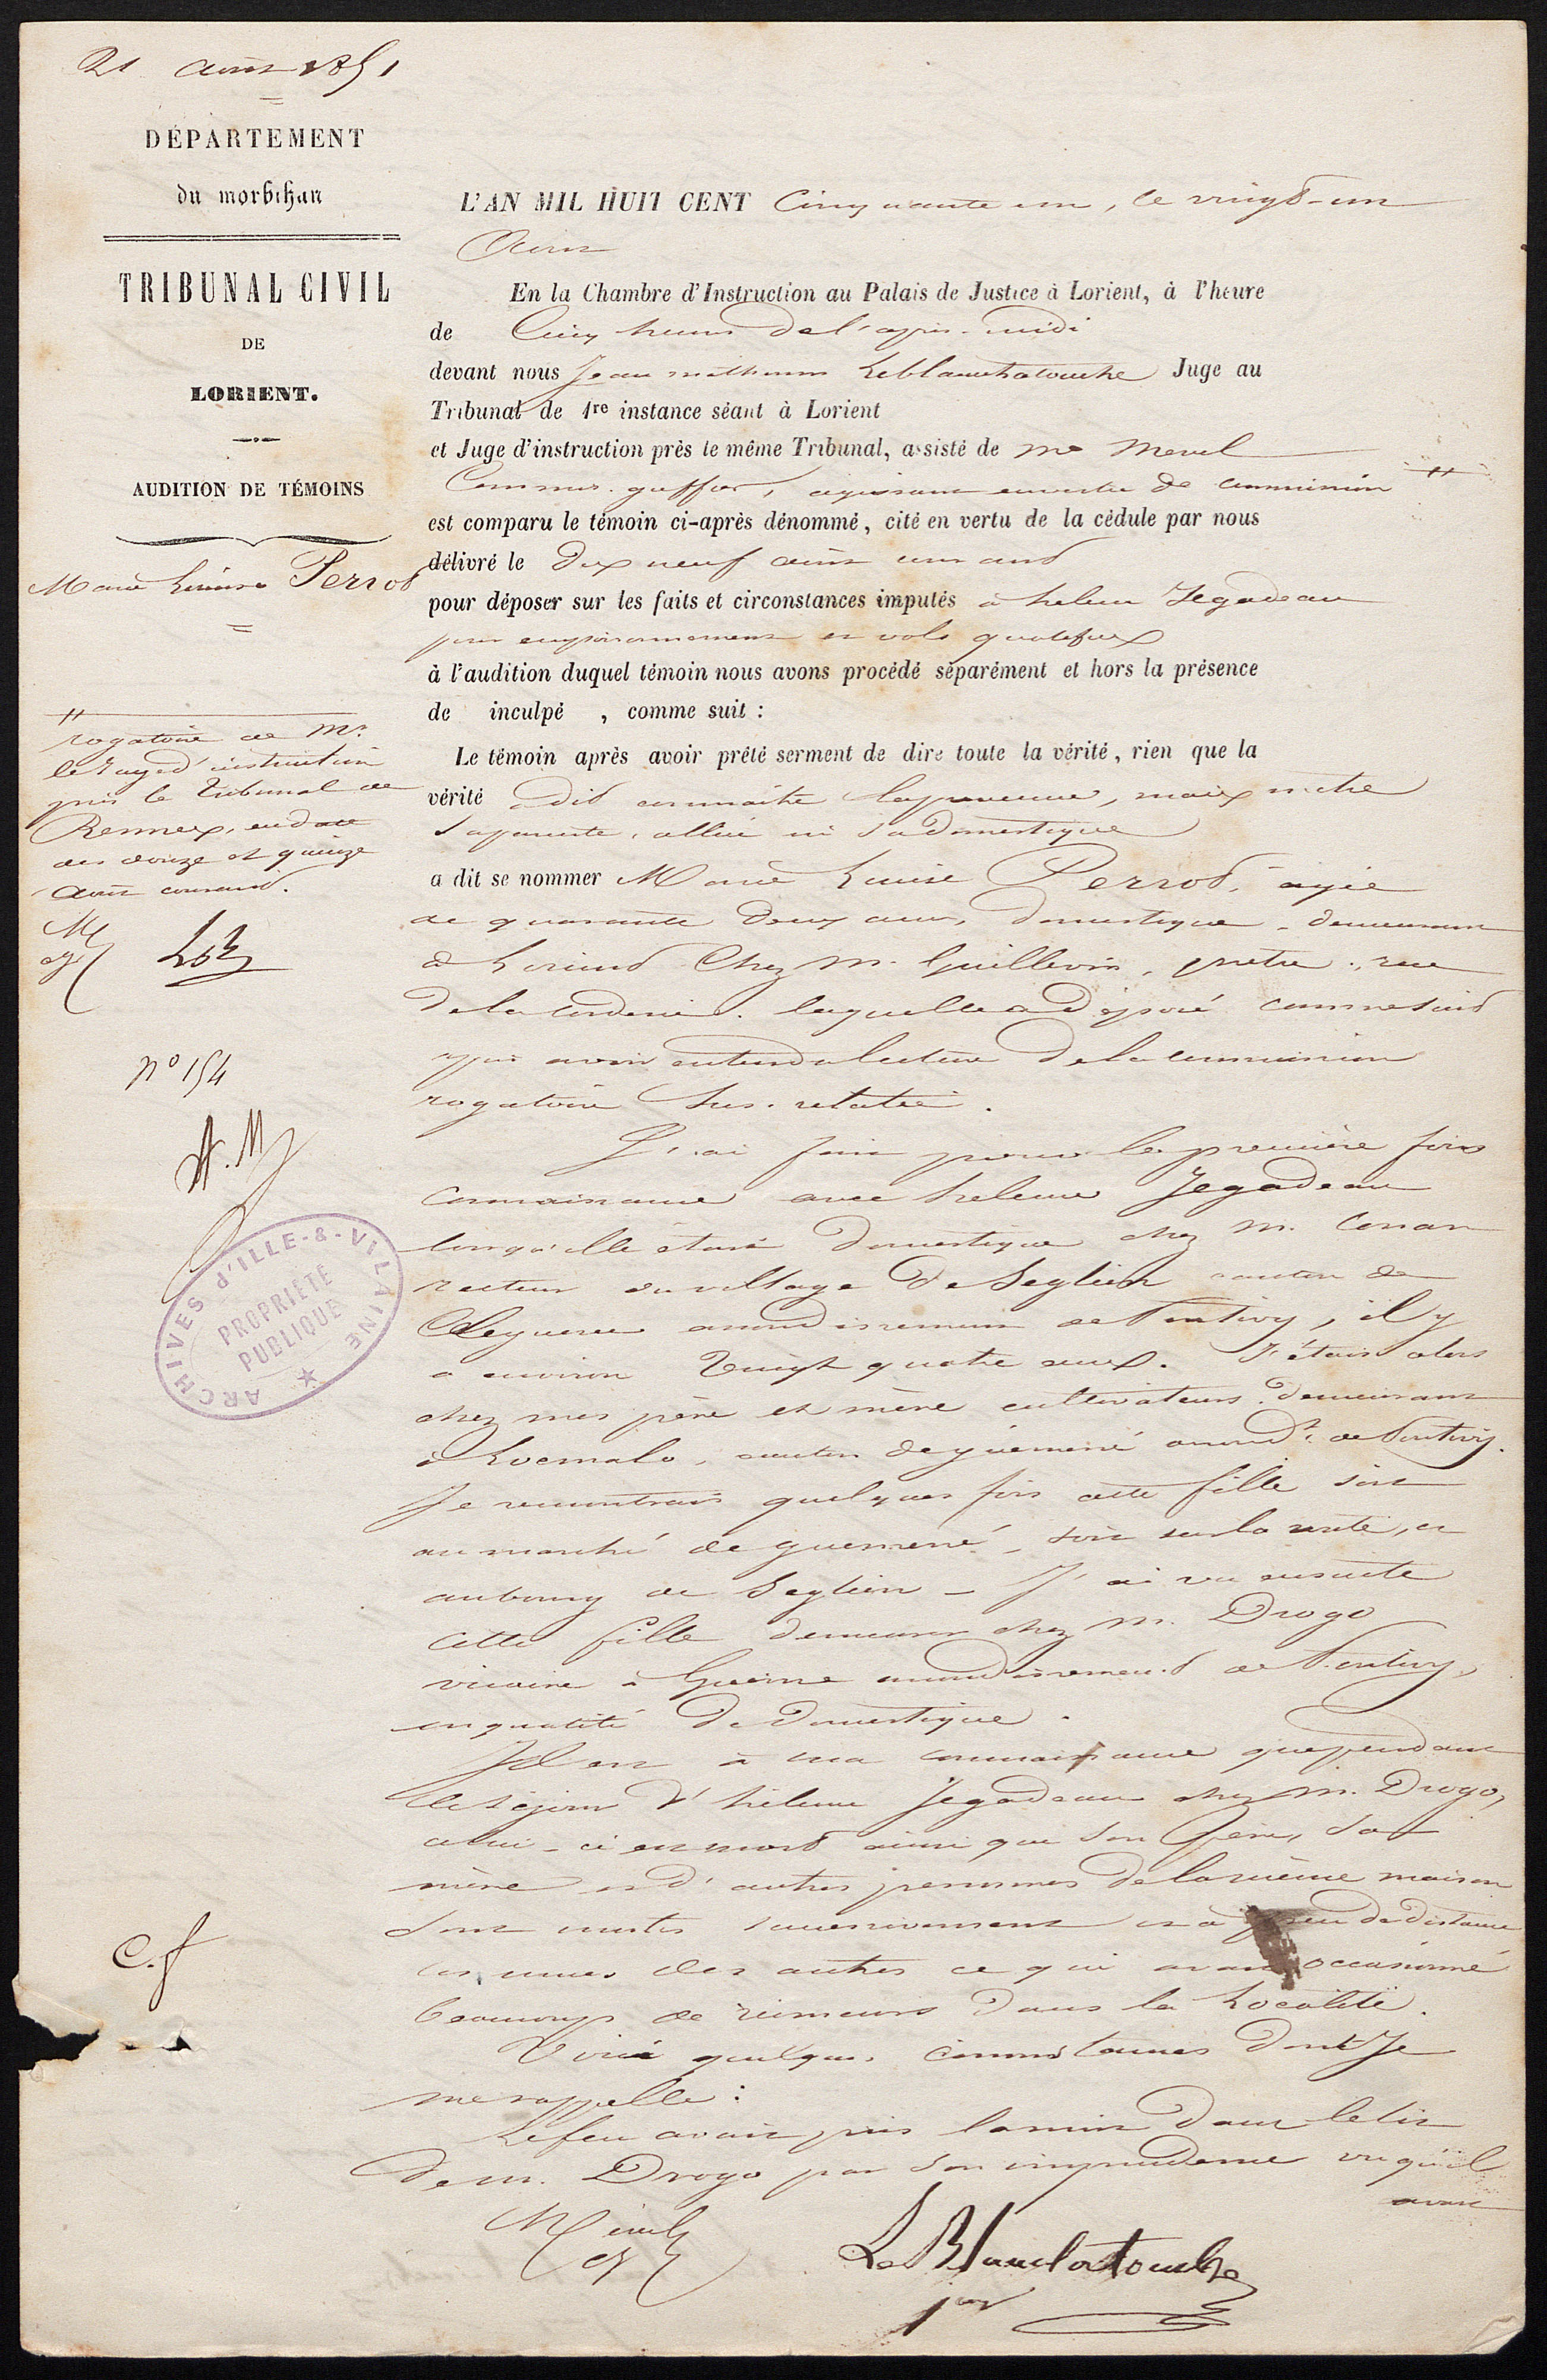 21 août 1851
DÉPARTEMENT
du morbihan
TRIBUNAL CIVIL
DE
LORIENT.
AUDITION DE TÉMOINS
Marie Louise Perrot
L'AN MIL HUIT CENT Cinquante un, le vingt-un
Août
En la Chambre d'Instruction au Palais de Justice à Lorient, à l'heure
de Cinq heures de l'après-midi
devant nous Jean mathurin Leblanchatouche Juge au
Tribunal de 1re instance séant à Lorient
et Juge d'instruction près le même Tribunal, assisté de me
Commis. greffier, agissant en vertu de commission #
est comparu le témoin ci-après dénommé, cité en vertu de la cédule par nous
délivré le dix neuf août courant
pour déposer sur les faits et circonstances imputés à helene Jegadeau
pour empoisonnement et vols qualifiés
à l'audition duquel témoin nous avons procédé séparément et hors la présence
de inculpé , comme suit :
Le témoin après avoir prêté serment de dire toute la vérité, rien que la
vérité a dit connaitre la prevenue, mais n'etre
sa parente, alliée ni sa domestique
a dit se nommer Marie Louise Perrot, agée
de quarante deux ans, domestique, demeurant
à Lorient Chez M. Guillevin, prêtre, rue
de la Corderie. laquelle a déposé comme suit
après avoir entendu lecture de la commission
rogatoire sus-relatée.
# rogatoire de Mr.
le Juge d'instruction
près le Tribunal de
Rennes, en date
des douze et quinze
août courant.
no 154
J'ai fait pour la première fois
connaissance avec helene Jegadeau
lorsqu'elle était domestique chez M. Conan
recteur du village de Seglien canton de
Cleguerec arrondissement de Pontivy, il y
a environ vingt quatre ans. J'étais alors
chez mes père et mère cultivateurs demeurant
à Locmalo, canton de guémené arrondt. de Pontivy.
Je rencontrais quelques fois cette fille soit
au marché de guemené, soit sur la route, et
au bourg de Seglien - J'ai vu ensuite
cette fille demeurer chez M. Drogo
vicaire à Guerne arrondissement de Pontivy,
en qualité de domestique.
Il est à ma connaissance que pendant
le séjour d'hélene Jegadeau chez M. Drogo,
celui-ci est mort ainsi que son père, sa
mère et d'autres personnes de la même maison
sont mortes successivement et à peu de distance
les unes des autres ce qui avait occasionné
beaucoup de rumeurs dans la Localité.
Voici quelques circonstances dont Je
me rappelle :
Le feu avait pris la nuit dans le lit
de M. Drogo par son imprudence vu qu'il
avait
LeBlanchatouche
ARCHIVES d'ILLE-&-VILAINE
PROPRIÉTÉ
PUBLIQUE